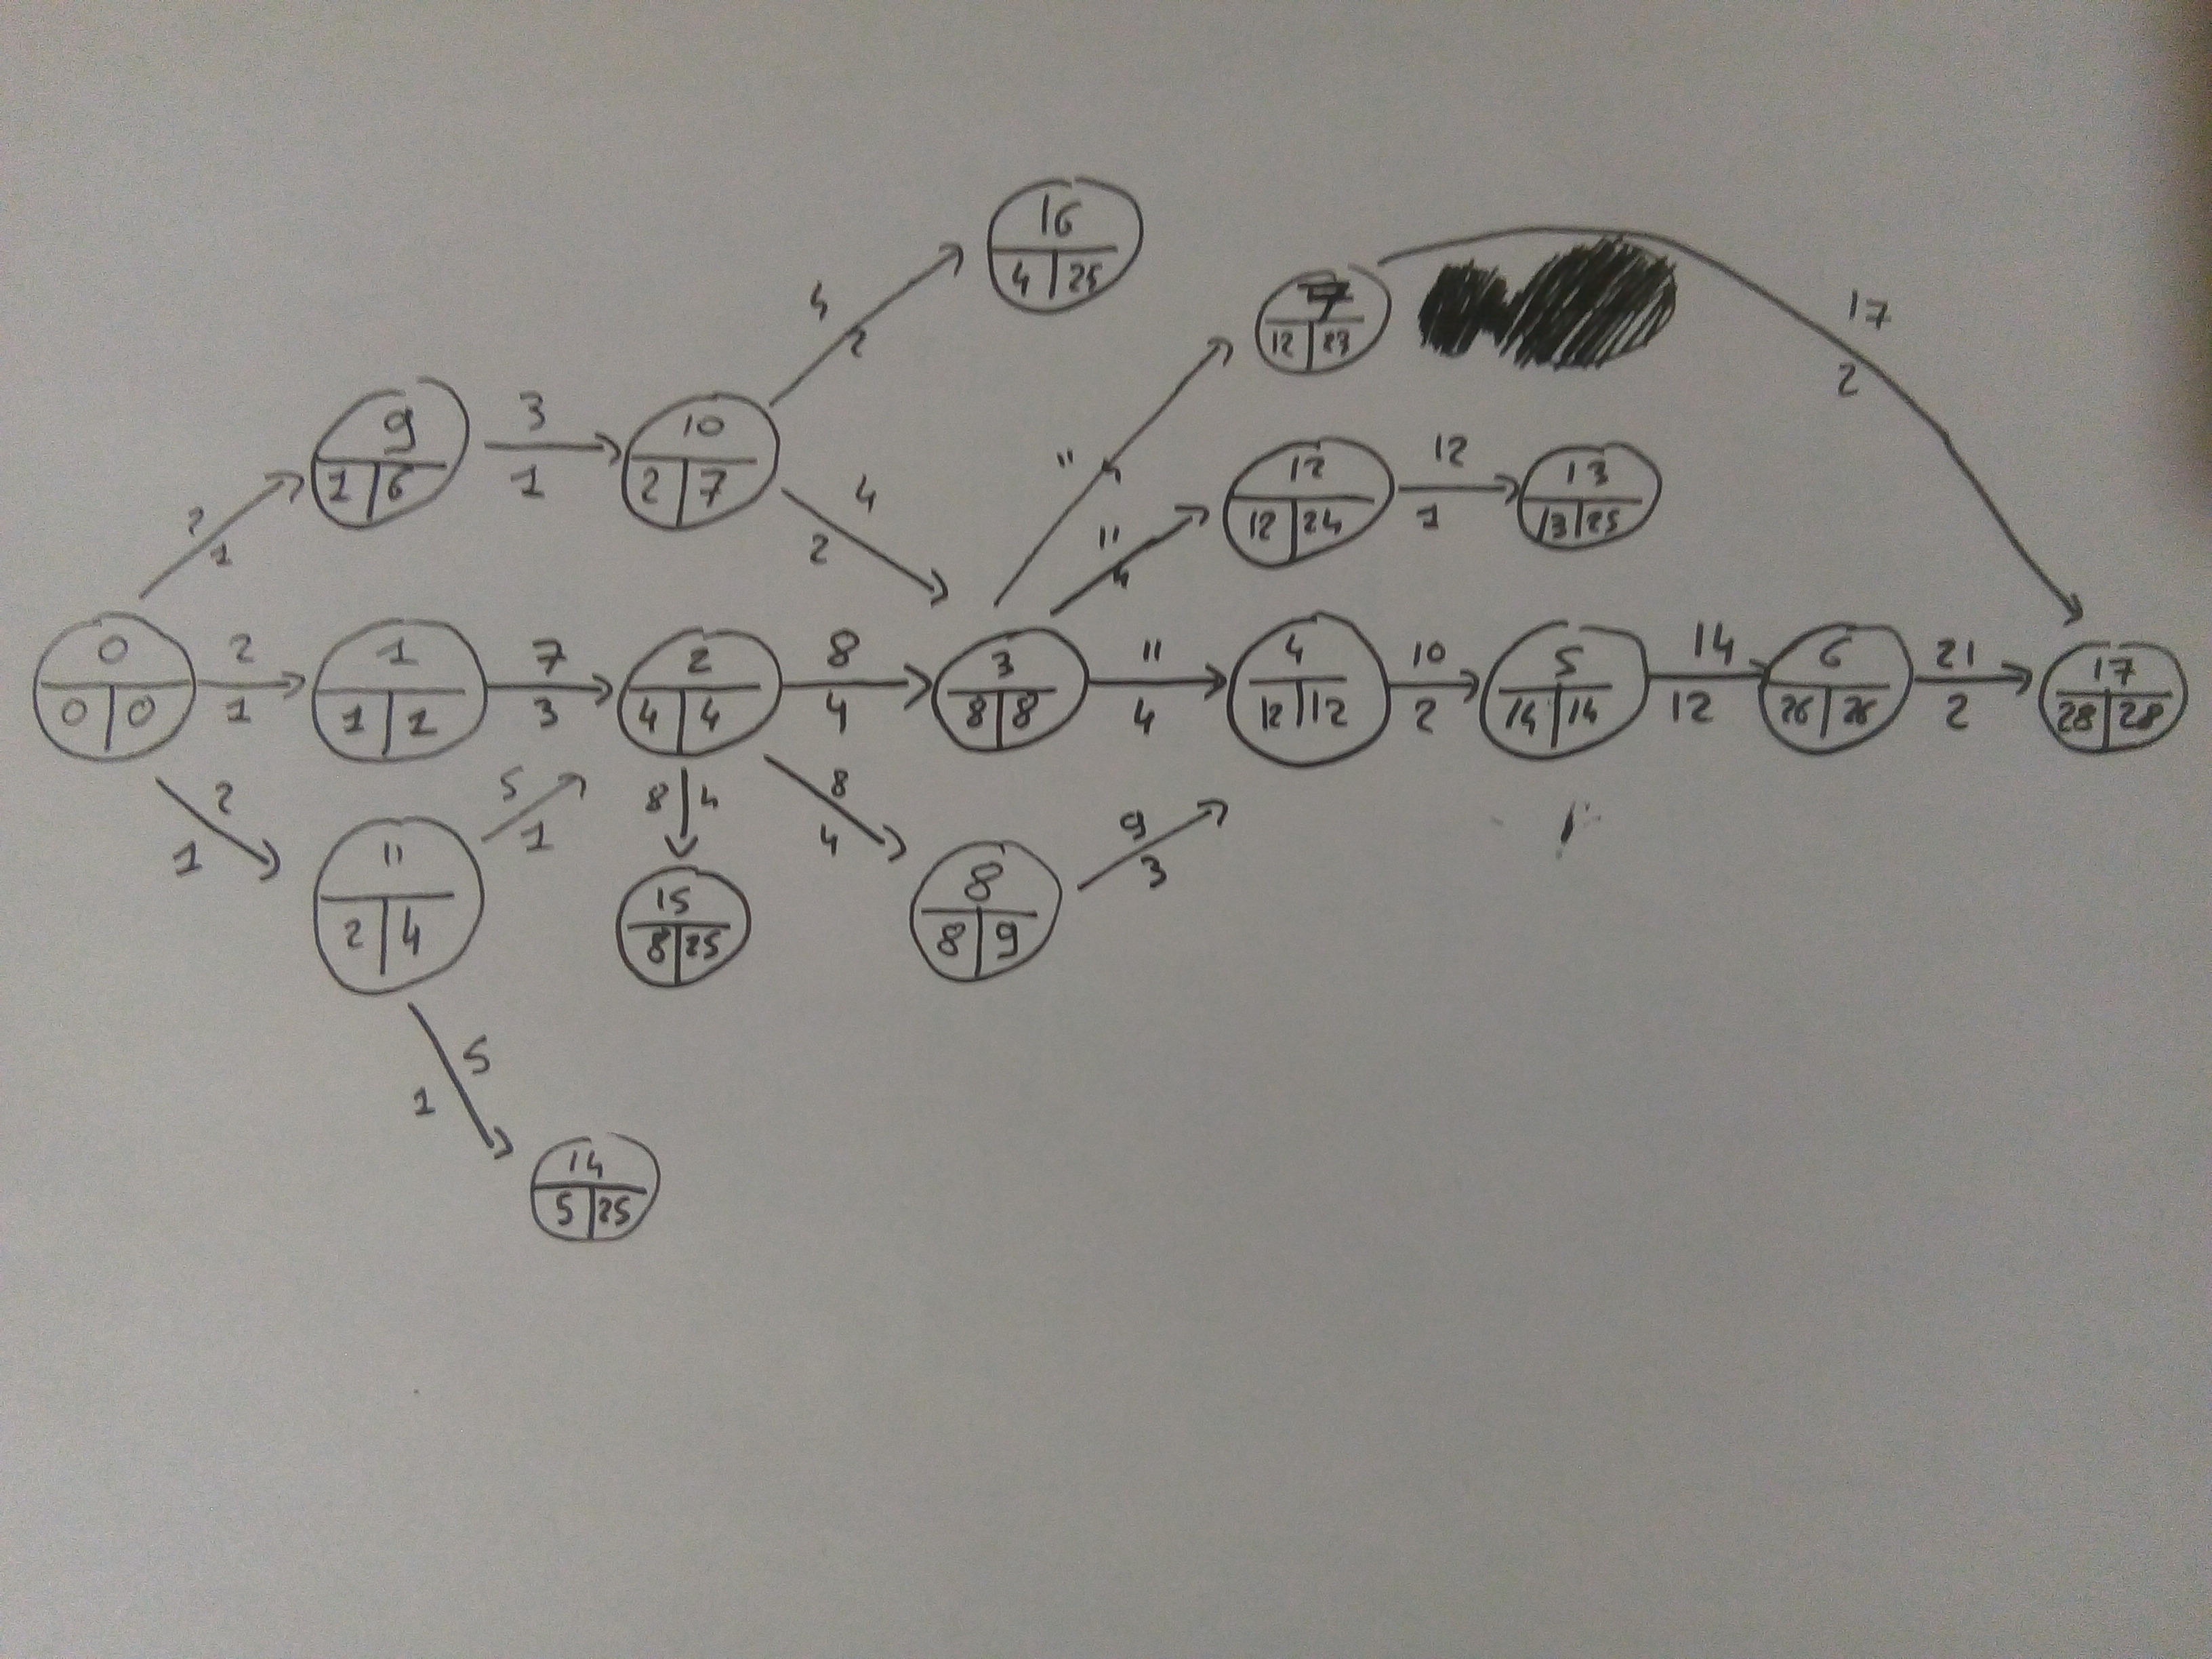 16
4 25
7
12 23
17
2
4
2
9
1 6
3
1
10
2 7
4
2
11
11
4
12
12 24
12
1
13
13 25
2
1
0
0 0
2
1
1
1 1
7
3
2
4 4
8
4
3
8 8
11
4
4
12 12
10
2
5
14 14
14
12
6
26 26
21
2
17
28 28
2
1
5
1
8 4
8
4
9
3
11
2 4
15
8 25
8
8 9
5
1
14
5 25